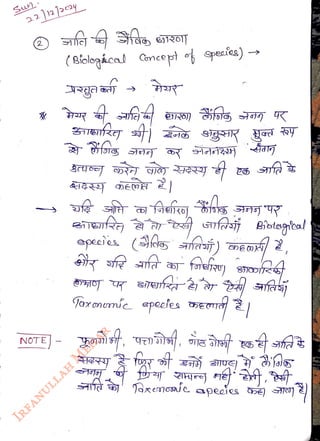 Sun.
22/12/2024
② जाति की जैविक धारणा
(Biological Concept of species) →
प्रस्तुतकर्ता → मेयर
* मेयर की जाति की धारणा लैंगिक जनन पर
आधारित थी। इनके अनुसार मुक्त रूप
से लैंगिक जनन कर जननक्षम संतान
उत्पन्न करने वाले सदस्य ही एक जाति के
सदस्य कहलाते है।
→ यदि जाति का निर्धारण लैंगिक जनन पर
आधारित हो तो ऐसी जातियाँ Biological
species (जैविक जातियाँ) कहलाती है,
और यदि जाति का निर्धारण आकारिकी
लक्षण पर आधारित हो तो ऐसी जातियाँ
Taxonomic species कहलाती है।
NOTE - फूलगोभी, पत्तागोभी, गांठ गोभी एक ही जाति के
सदस्य है फिर भी इनमें आपस में लैंगिक
जनन की क्रिया सम्पन्न नहीं होती, ऐसी
जाति को Taxonomic species कहा जाता है।
IRFANULLAH